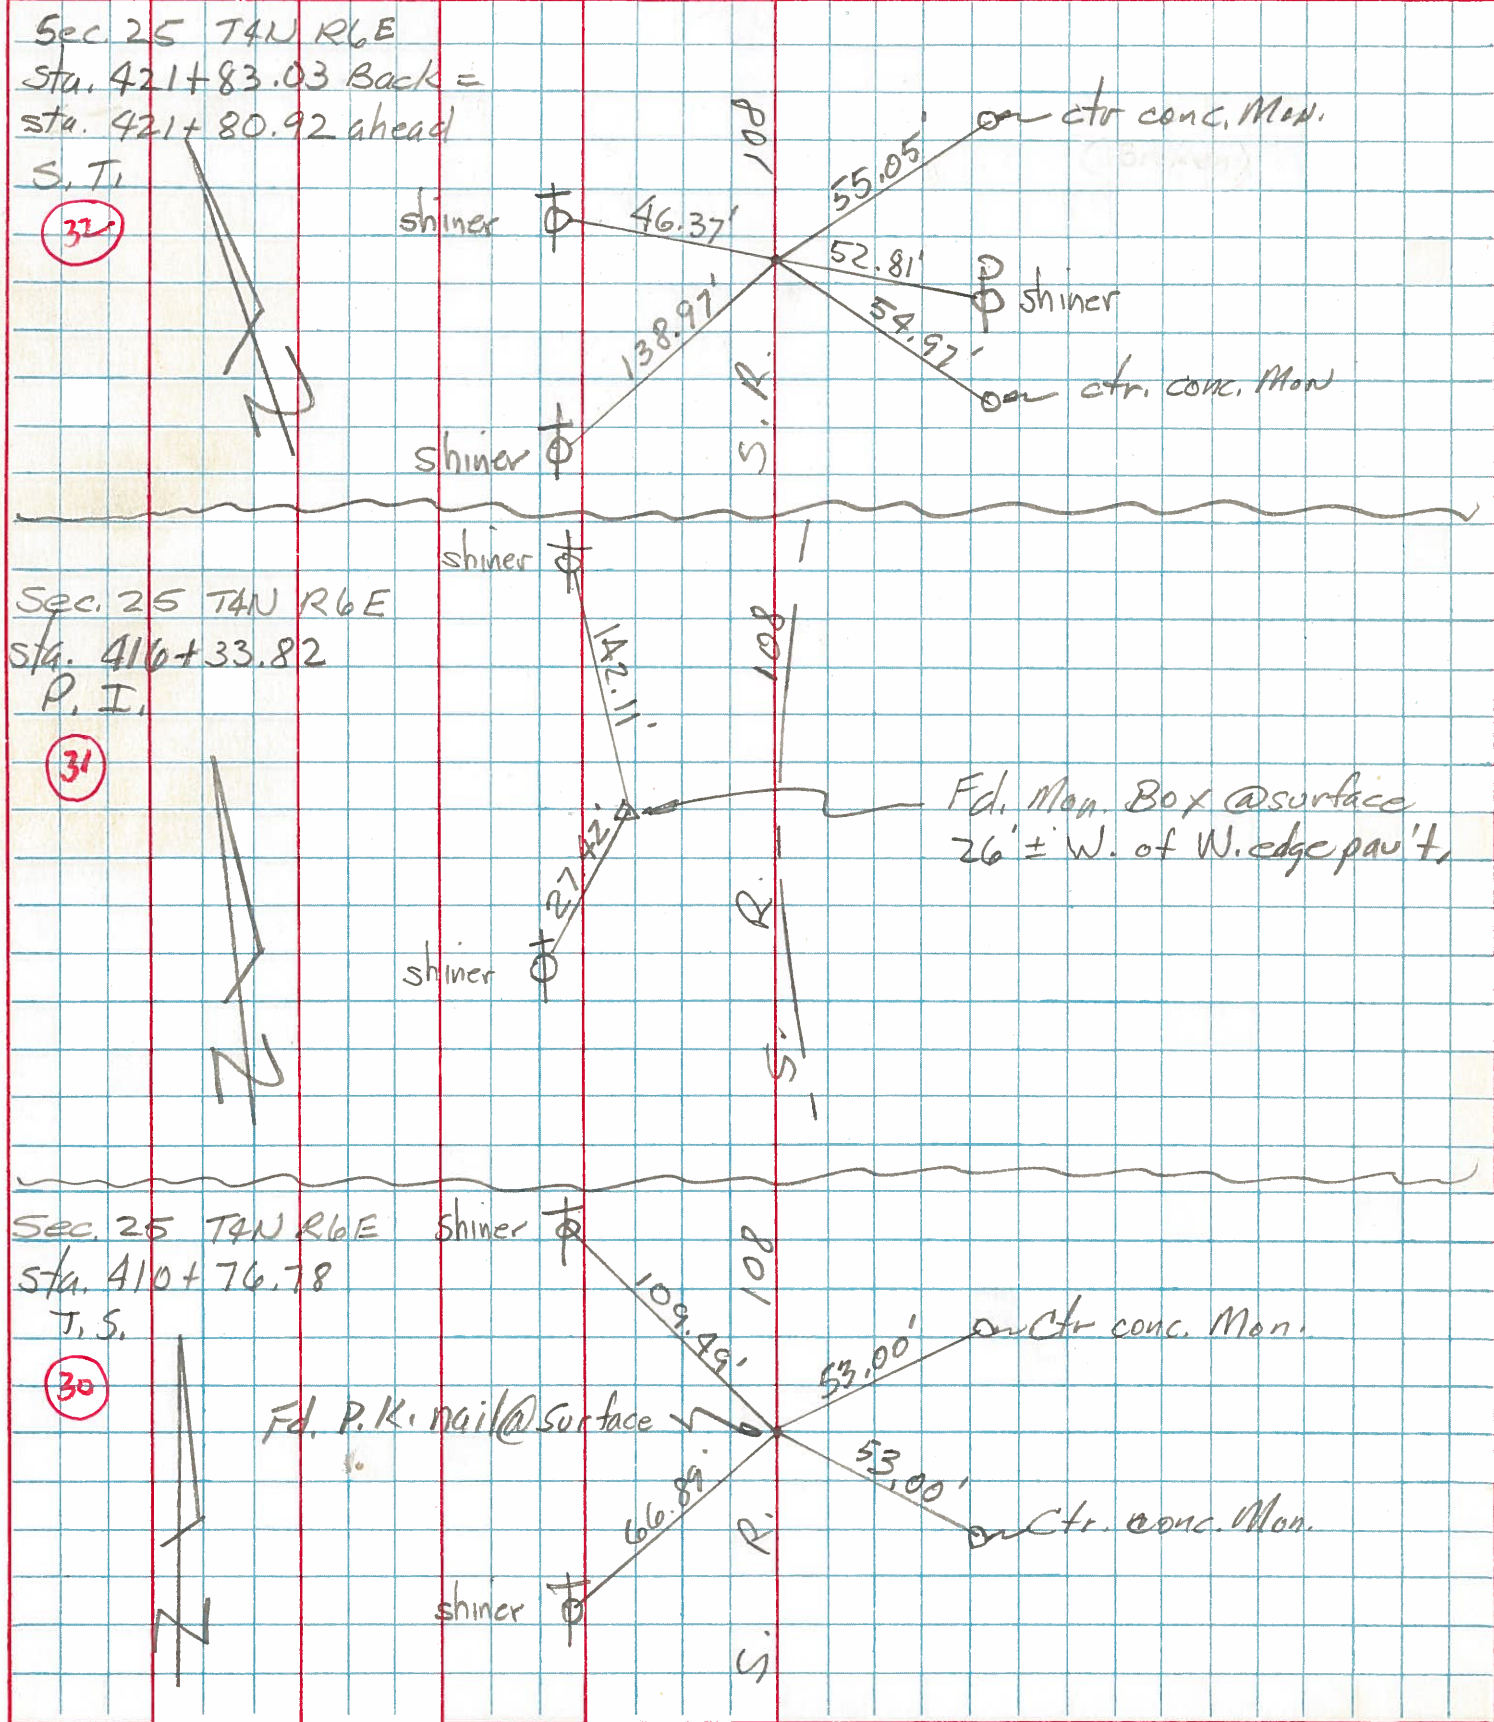 Sec. 25 T4N R6E
sta. 421+83.03 Back =
sta. 421+80.92 ahead
S.T.
32
N
shiner
46.37'
108
55.05'
ctr conc. Mon.
52.81'
shiner
54.97'
ctr. conc. Mon
138.97'
shiner
S. R.
shiner
Sec. 25 T4N R6E
sta. 416+33.82
P. I.
31
N
142.11'
108
Fd. Mon. Box @ surface
26' ± W. of W. edge pav't.
27.42'
shiner
S. R.
Sec. 25 T4N R6E
sta. 410+76.78
T.S.
30
N
shiner
109.49'
108
53.00'
Ctr conc. Mon.
Fd. P.K. nail @ surface
53.00'
Ctr. conc. Mon.
66.89'
shiner
S. R.